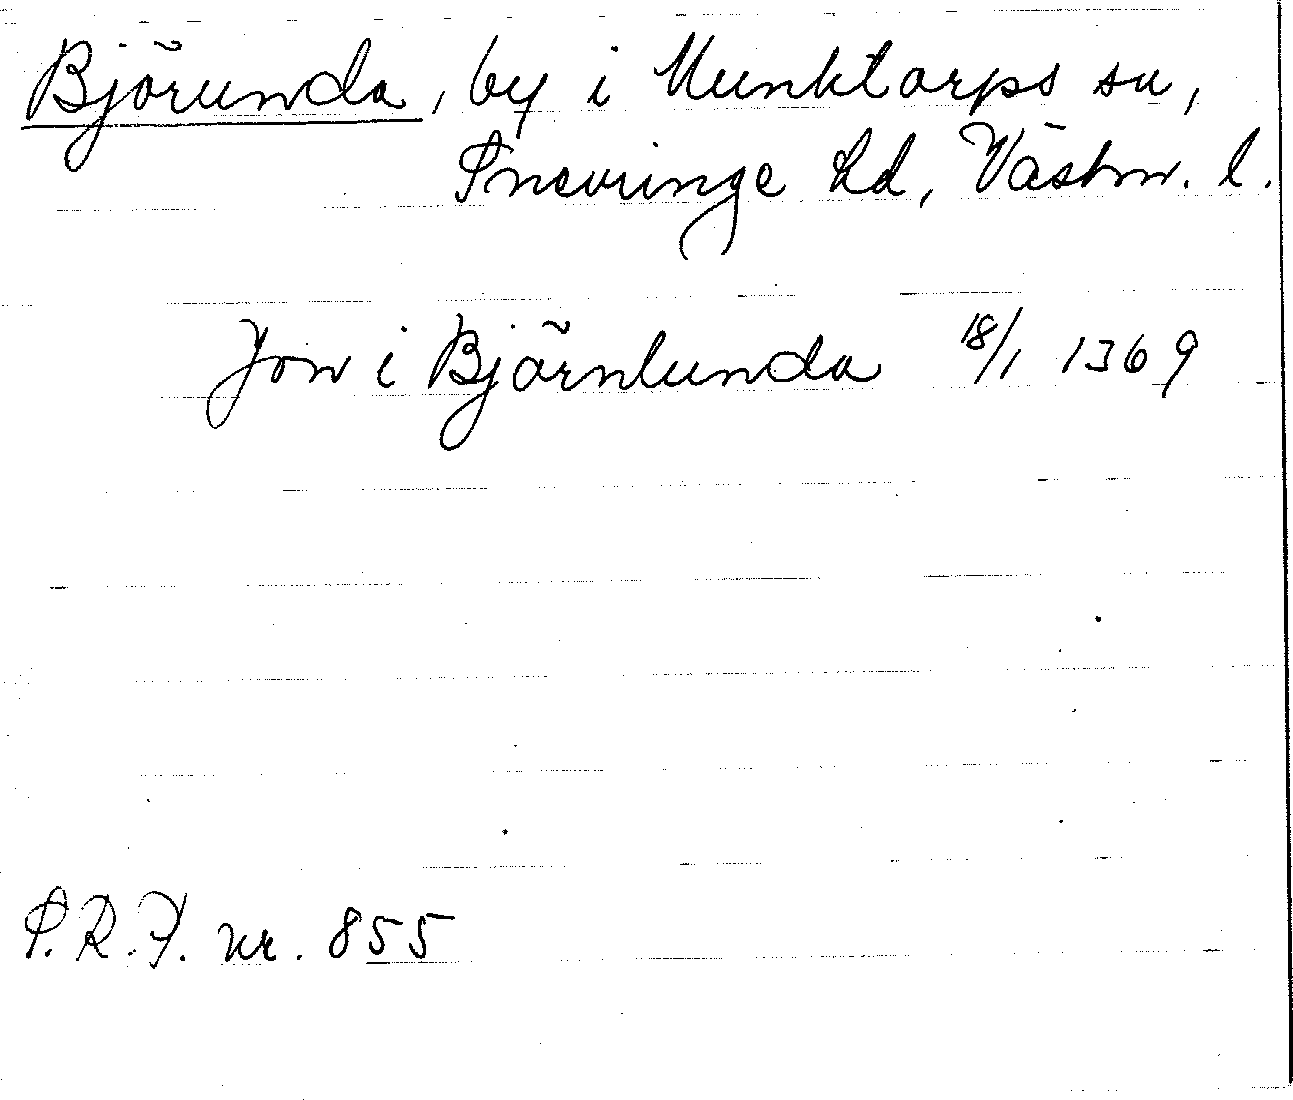 Björunda, by i Munktorps sn,
Snevringe hd, Västm. l.
Jon i Björnlunda 18/1 1369
S.R.P. nr. 855